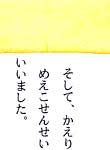 そして、かえり
めえこせんせい
いいました。